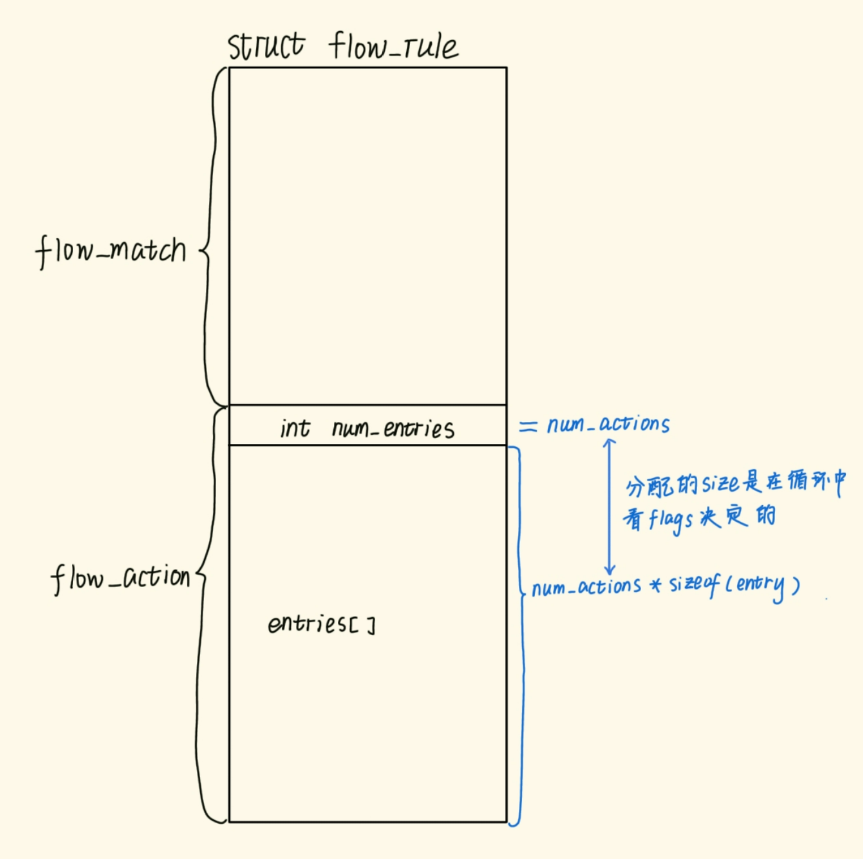 struct flow_rule
flow_match
int num_entries
= num_actions
分配的size是在循环中
看flags决定的
flow_action
num_actions * sizeof(entry)
entries[]